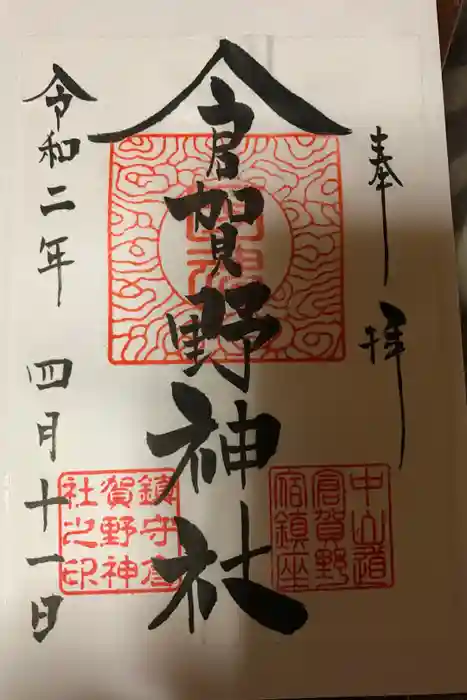 奉拝
倉賀野神社
令和二年 四月十一日
中山道
倉賀野
宿鎮座
鎮守倉
賀野神
社之印